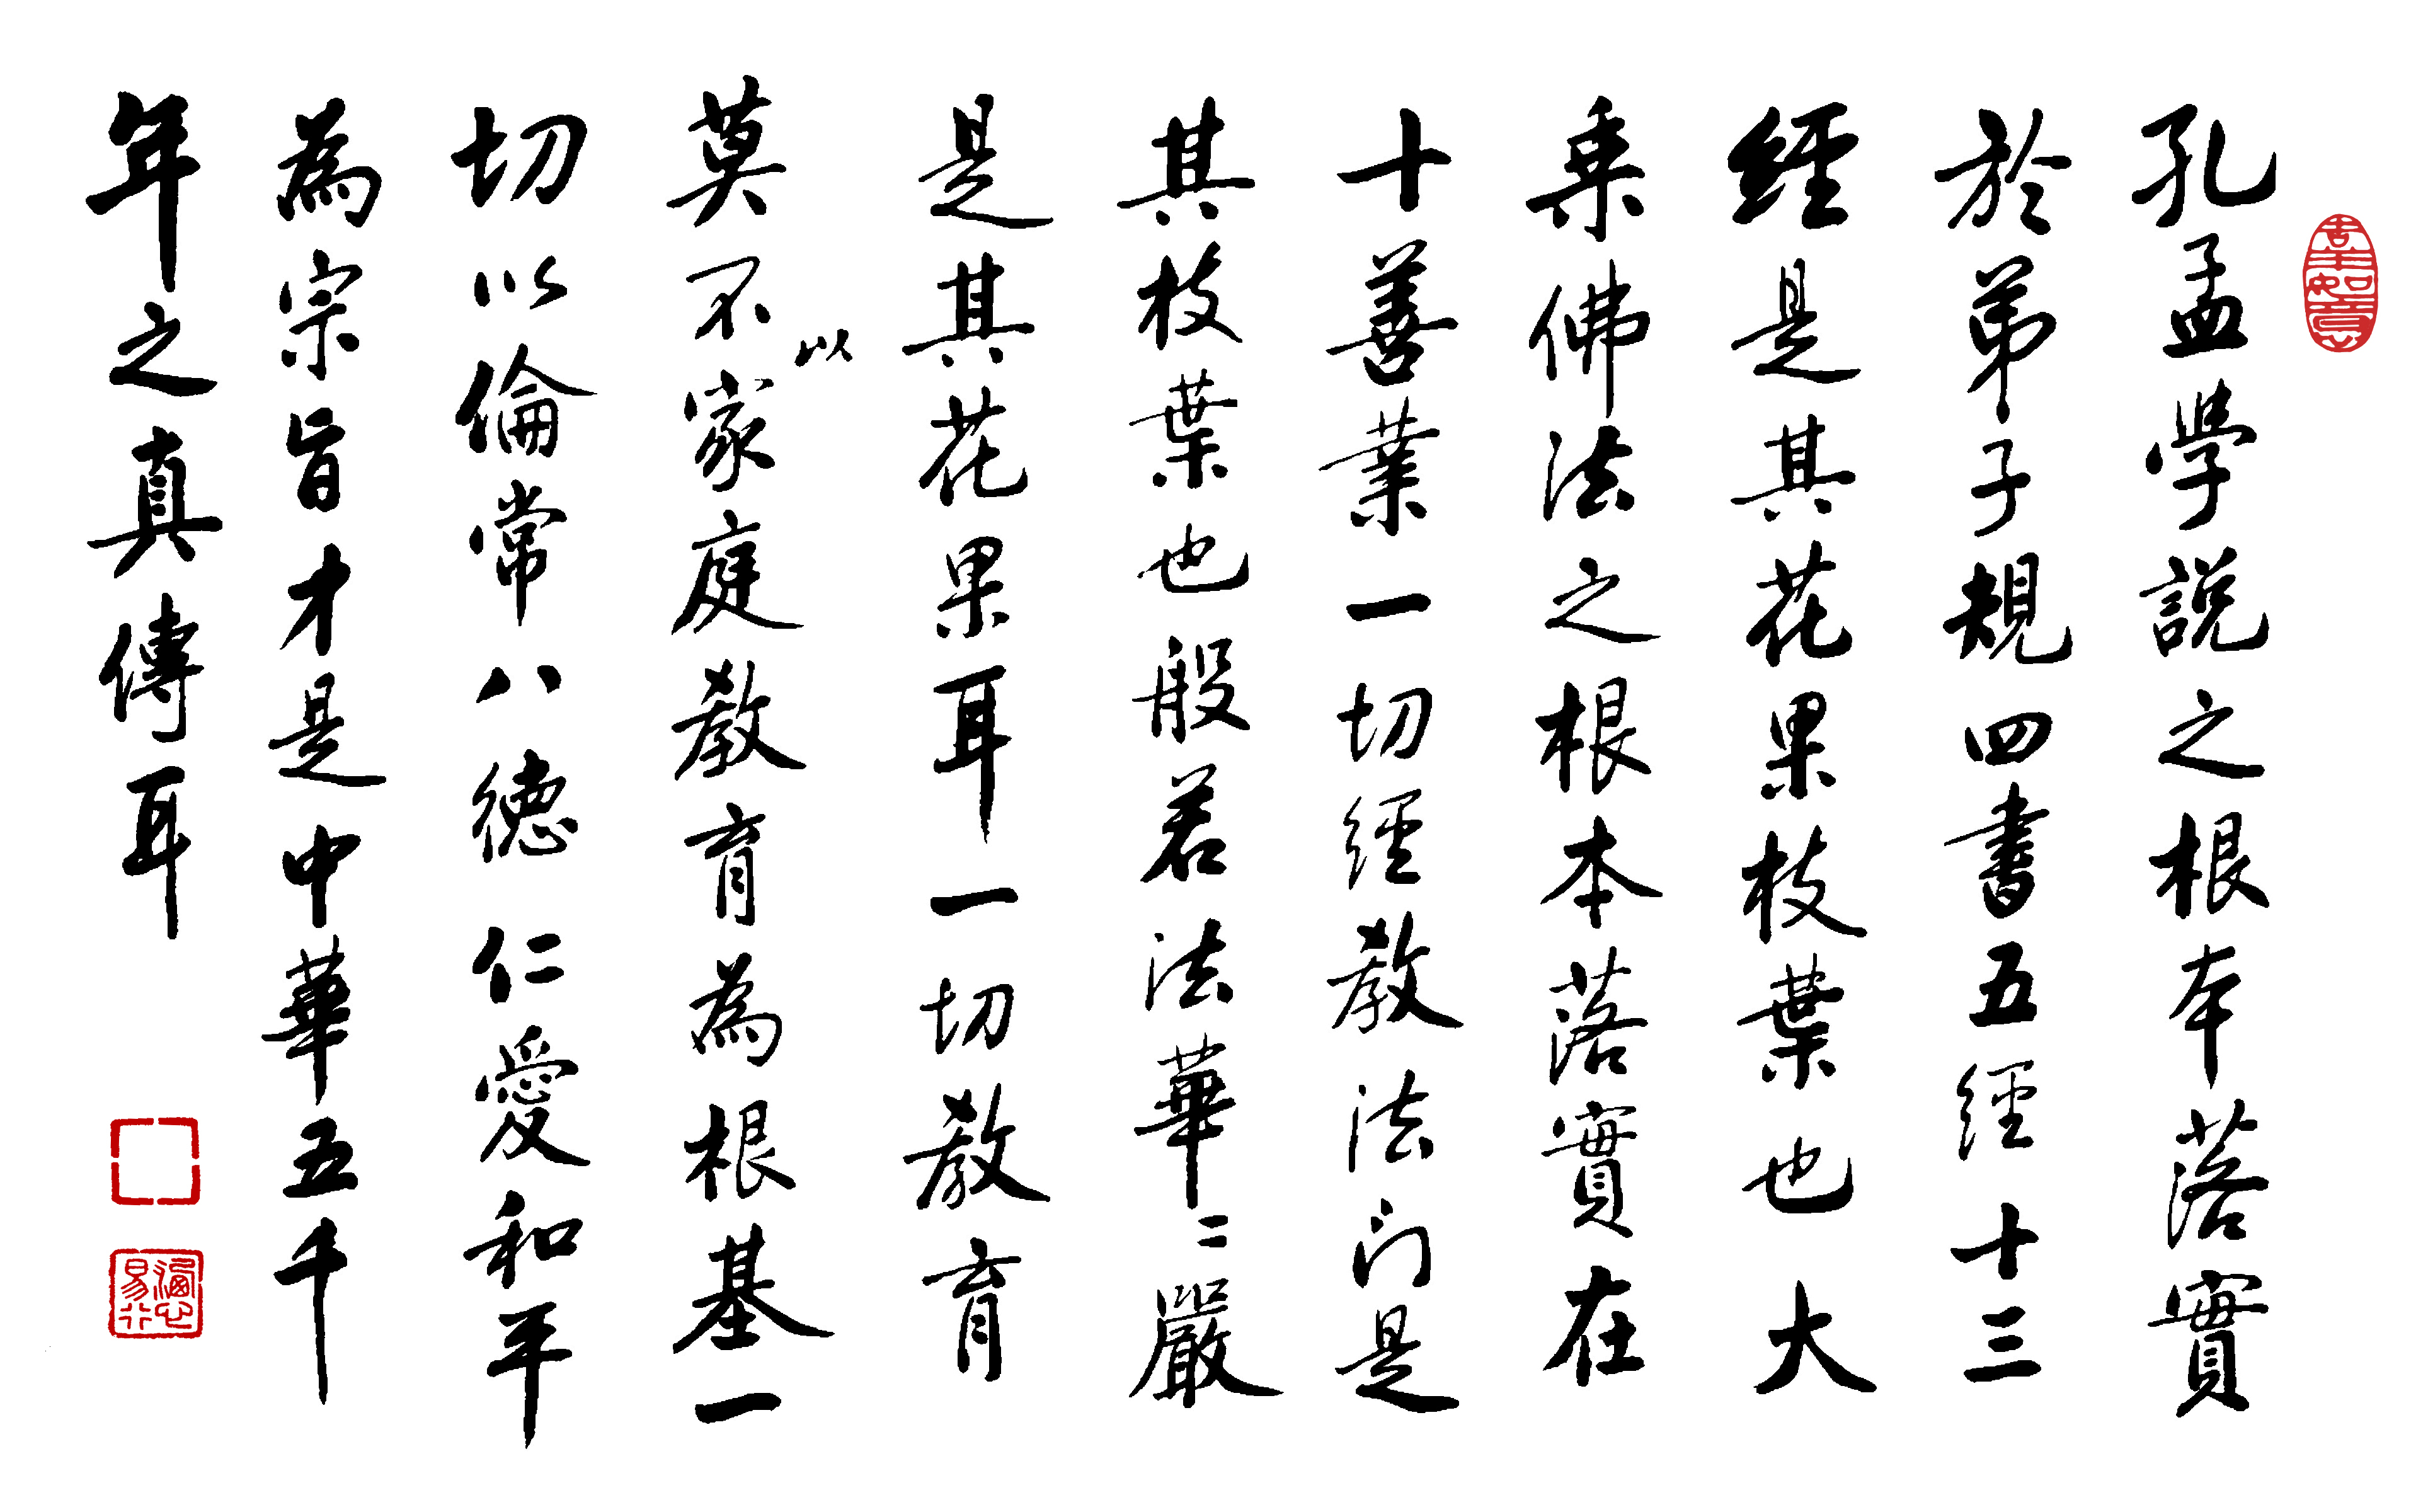 孔孟學說之根本落實
於弟子規四書五經十三
經是其花果枝葉也大
乘佛法之根本落實在
十善業一切經教法门是
其枝葉也般若法華二嚴
是其花果耳一切教育
莫不以家庭教育為根基一
切以倫常八德仁愛和平
為宗旨才是中華五千
年之真傳耳
吉祥如意